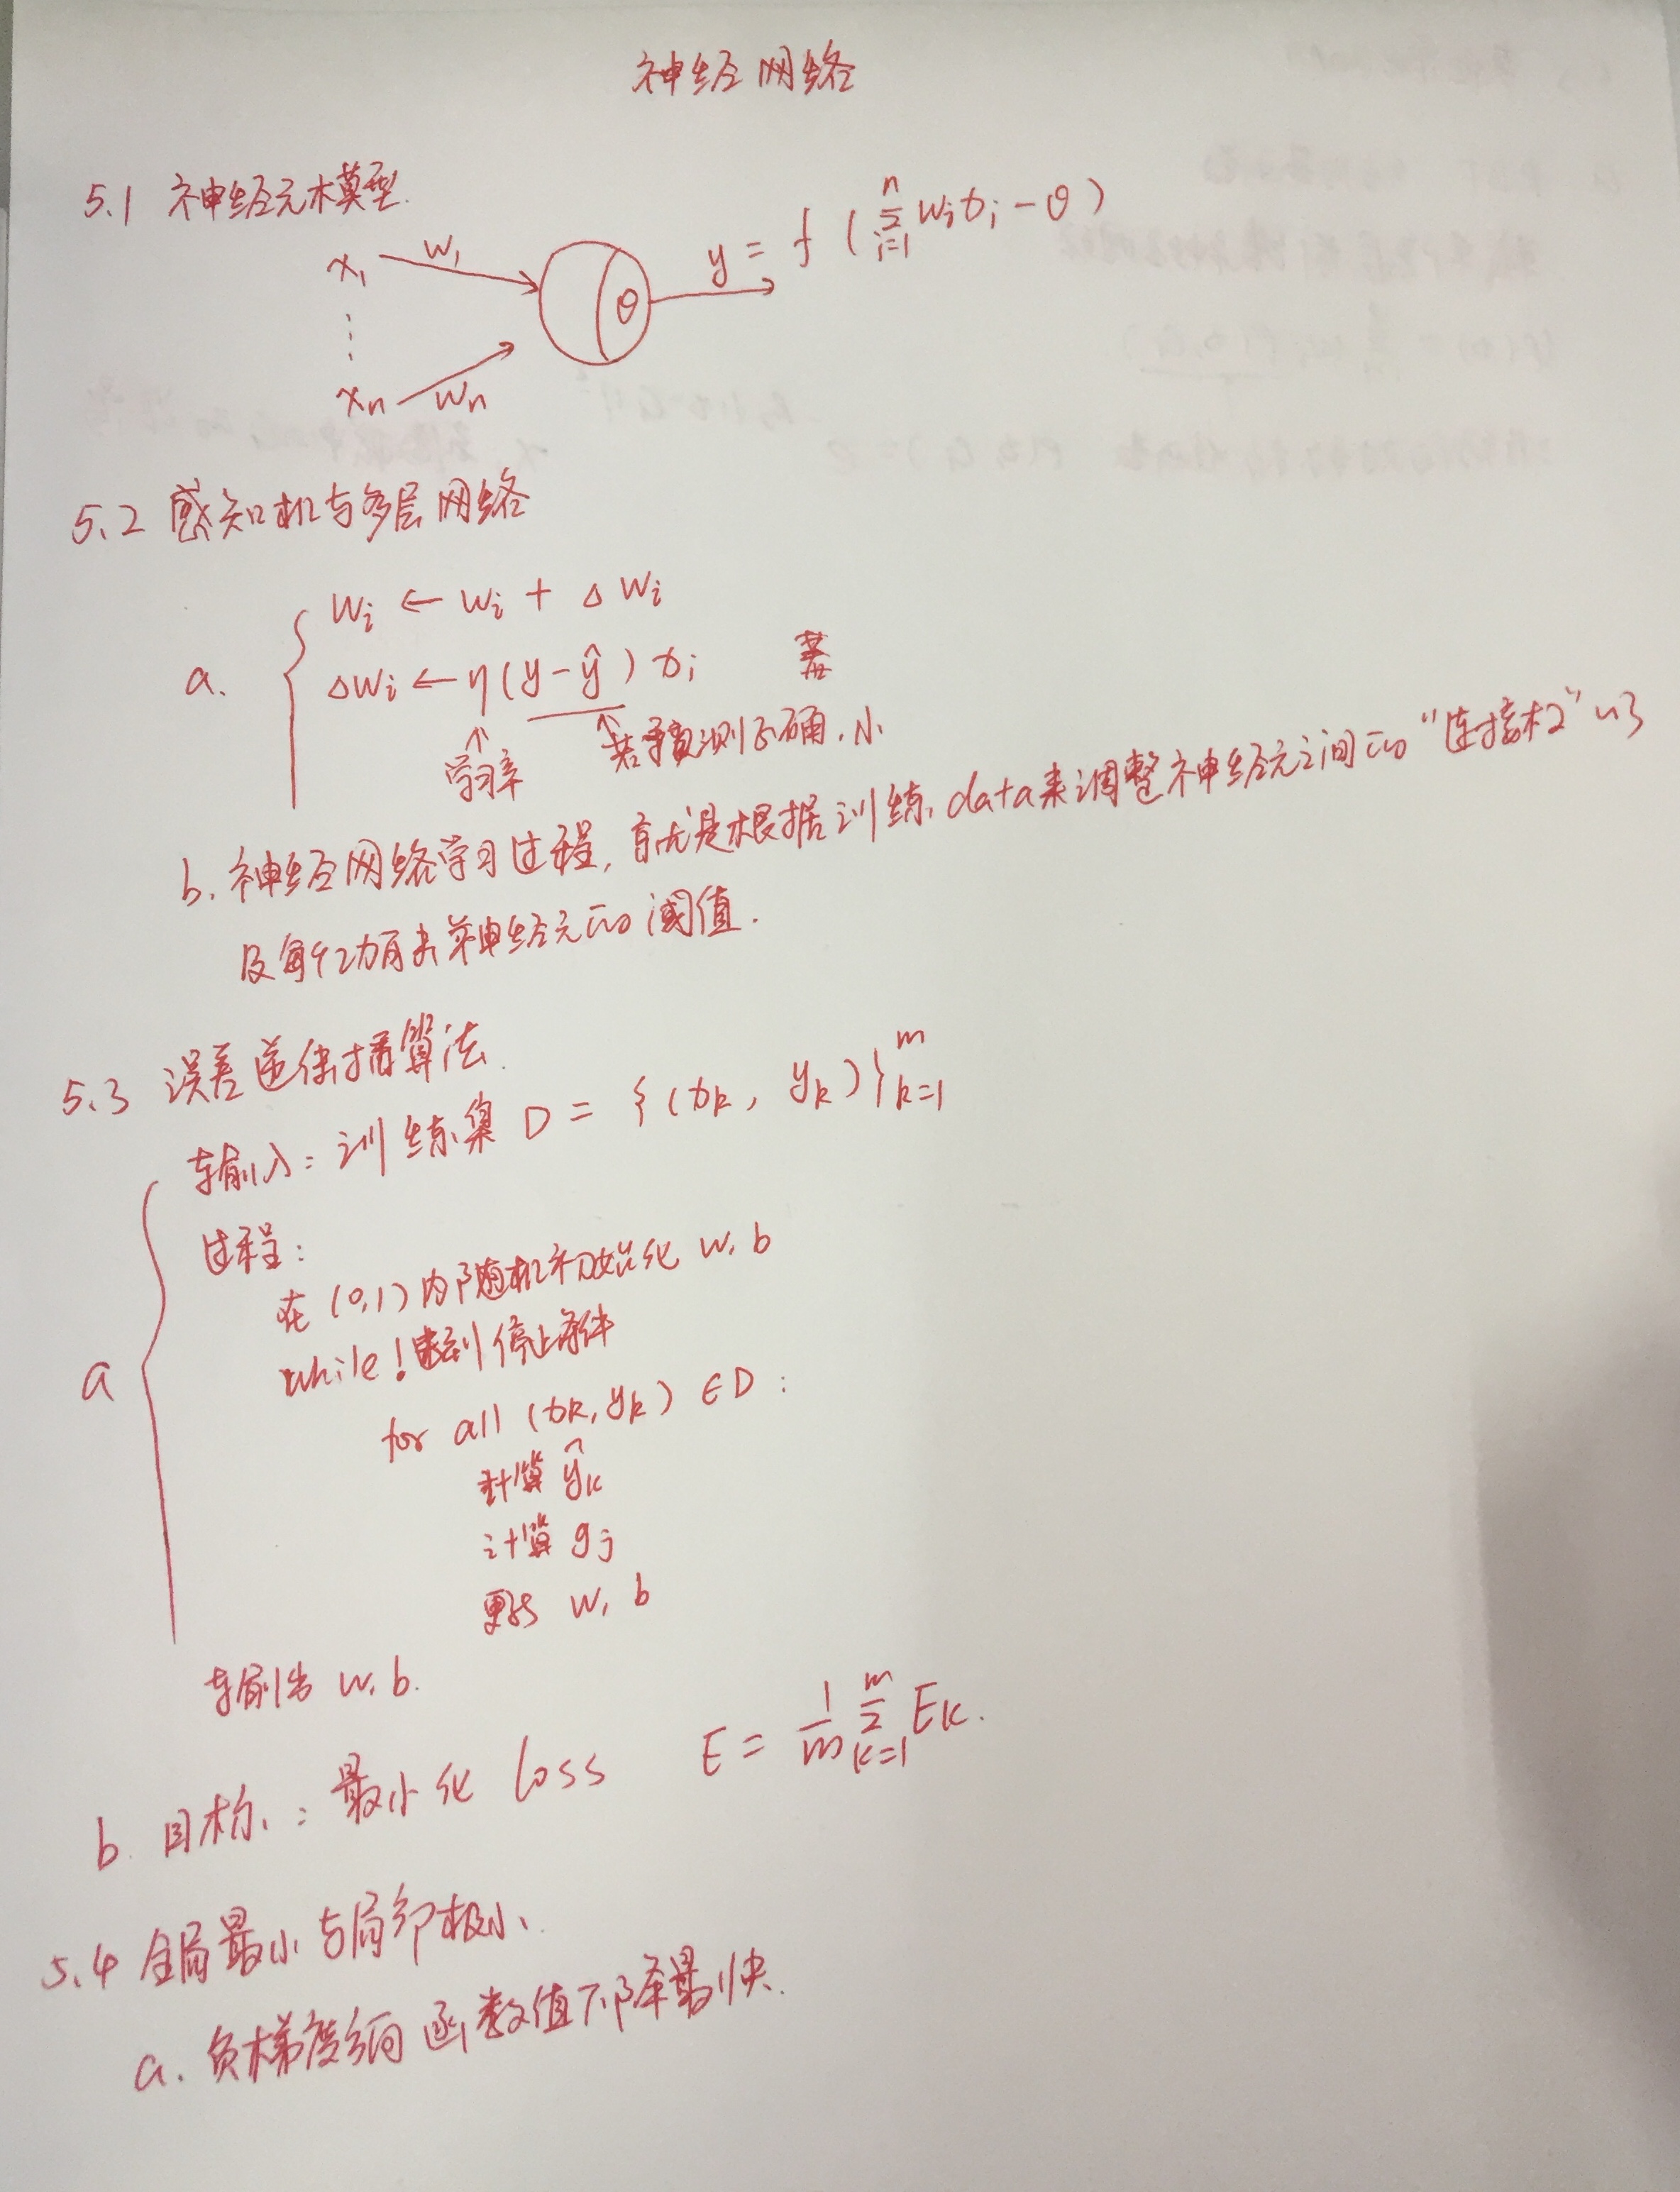 神经网络
5.1 神经元模型.
x₁ w₁
y = f (∑ᵢ₌₁ⁿ wᵢxᵢ - θ)
θ
⋮
xₙ wₙ
5.2 感知机与多层网络
a. wᵢ ← wᵢ + Δwᵢ
Δwᵢ ← η(y-ŷ)xᵢ
↑学习率 ↑若预测正确,小
b. 神经网络学习过程, 就是根据训练data来调整神经元之间的“连接权”以
及每个功能神经元的阈值.
5.3 误差逆传播算法.
输入: 训练集 D = {(xₖ, yₖ)}ₖ₌₁ᵐ
过程:
a 在 (0,1) 内随机初始化 w, b
while! 达到停止条件
for all (xₖ, yₖ) ∈ D :
计算 ŷₖ
计算 gⱼ
更新 w, b
输出 w, b.
b 目标: 最小化 loss E = 1/m ∑ₖ₌₁ᵐ Eₖ.
5.4 全局最小与局部极小.
a. 负梯度方向 函数值下降最快.